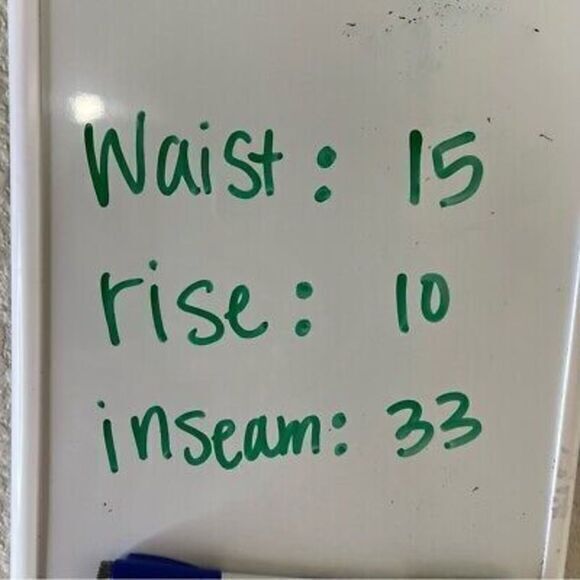 Waist: 15
rise: 10
inseam: 33